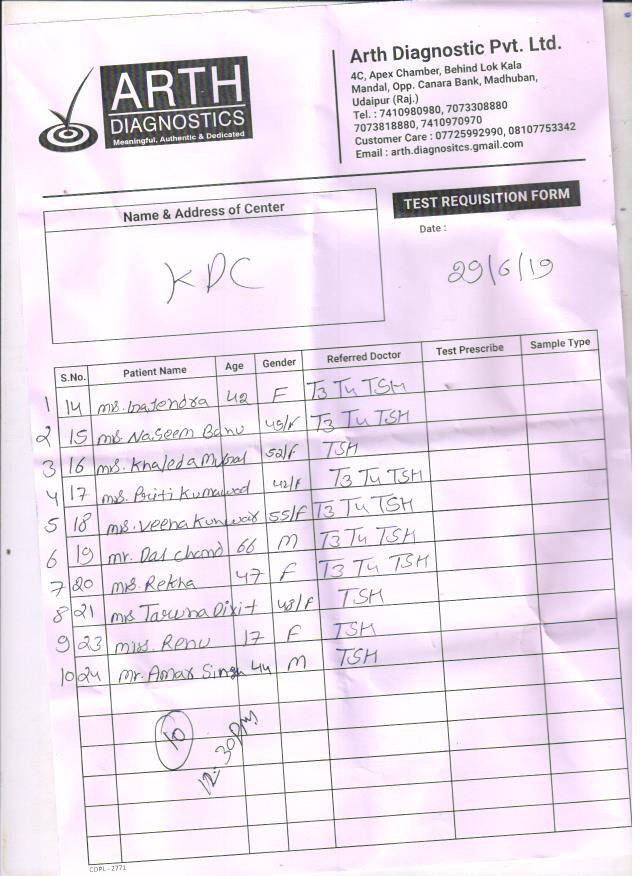 ARTH
DIAGNOSTICS
Meaningful, Authentic & Dedicated
Arth Diagnostic Pvt. Ltd.
4C, Apex Chamber, Behind Lok Kala
Mandal, Opp. Canara Bank, Madhuban,
Udaipur (Raj.)
Tel. : 7410980980, 7073308880
7073818880, 7410970970
Customer Care : 07725992990, 08107753342
Email : arth.diagnositcs.gmail.com
TEST REQUISITION FORM
Name & Address of Center
Date :
KDC
29/6/19
S.No. Patient Name Age Gender Referred Doctor Test Prescribe Sample Type
1 14 mrs. 42 F T3 T4 TSH
2 15 mrs Naseem Banu 45/F T3 T4 TSH
3 16 mrs. Khaleda 52/F TSH
4 17 mrs. Priti Kumawad 42/F T3 T4 TSH
5 18 mrs. Veena Kunwar 55/F T3 T4 TSH
6 19 mr. Dal chand 66 M T3 T4 TSH
7 20 mrs. Rekha 47 F T3 T4 TSH
8 21 mrs Taruna Dixit 48/F TSH
9 23 miss. Renu 17 F TSH
10 24 Mr. Amar Singh 44 M TSH
10
12:30 pm
CDPL - 2771